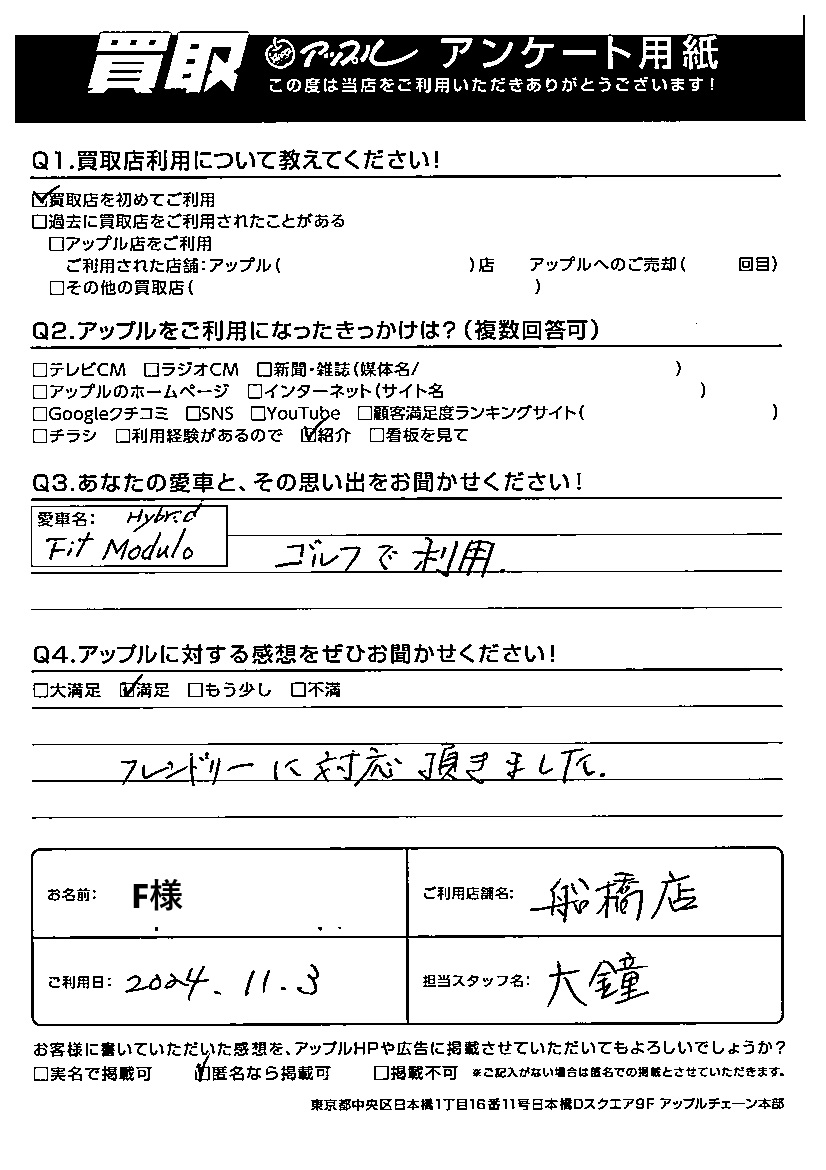 買取 アップル アンケート用紙
この度は当店をご利用いただきありがとうございます!
Q1.買取店利用について教えてください!
☑買取店を初めてご利用
□過去に買取店をご利用されたことがある
□アップル店をご利用
ご利用された店舗:アップル( )店 アップルへのご売却( 回目)
□その他の買取店( )
Q2.アップルをご利用になったきっかけは?(複数回答可)
□テレビCM □ラジオCM □新聞・雑誌(媒体名/ )
□アップルのホームページ □インターネット(サイト名 )
□Googleクチコミ □SNS □YouTube □顧客満足度ランキングサイト( )
□チラシ □利用経験があるので ☑紹介 □看板を見て
Q3.あなたの愛車と、その思い出をお聞かせください!
愛車名: Hybrid
Fit Modulo
ゴルフで利用.
Q4.アップルに対する感想をぜひお聞かせください!
□大満足 ☑満足 □もう少し □不満
フレンドリーに対応頂きました.
お名前: F様
ご利用店舗名: 船橋店
ご利用日: 2024.11.3
担当スタッフ名: 大鐘
お客様に書いていただいた感想を、アップルHPや広告に掲載させていただいてもよろしいでしょうか?
□実名で掲載可 ☑匿名なら掲載可 □掲載不可 ※ご記入がない場合は匿名での掲載とさせていただきます。
東京都中央区日本橋1丁目16番11号日本橋Dスクエア9F アップルチェーン本部